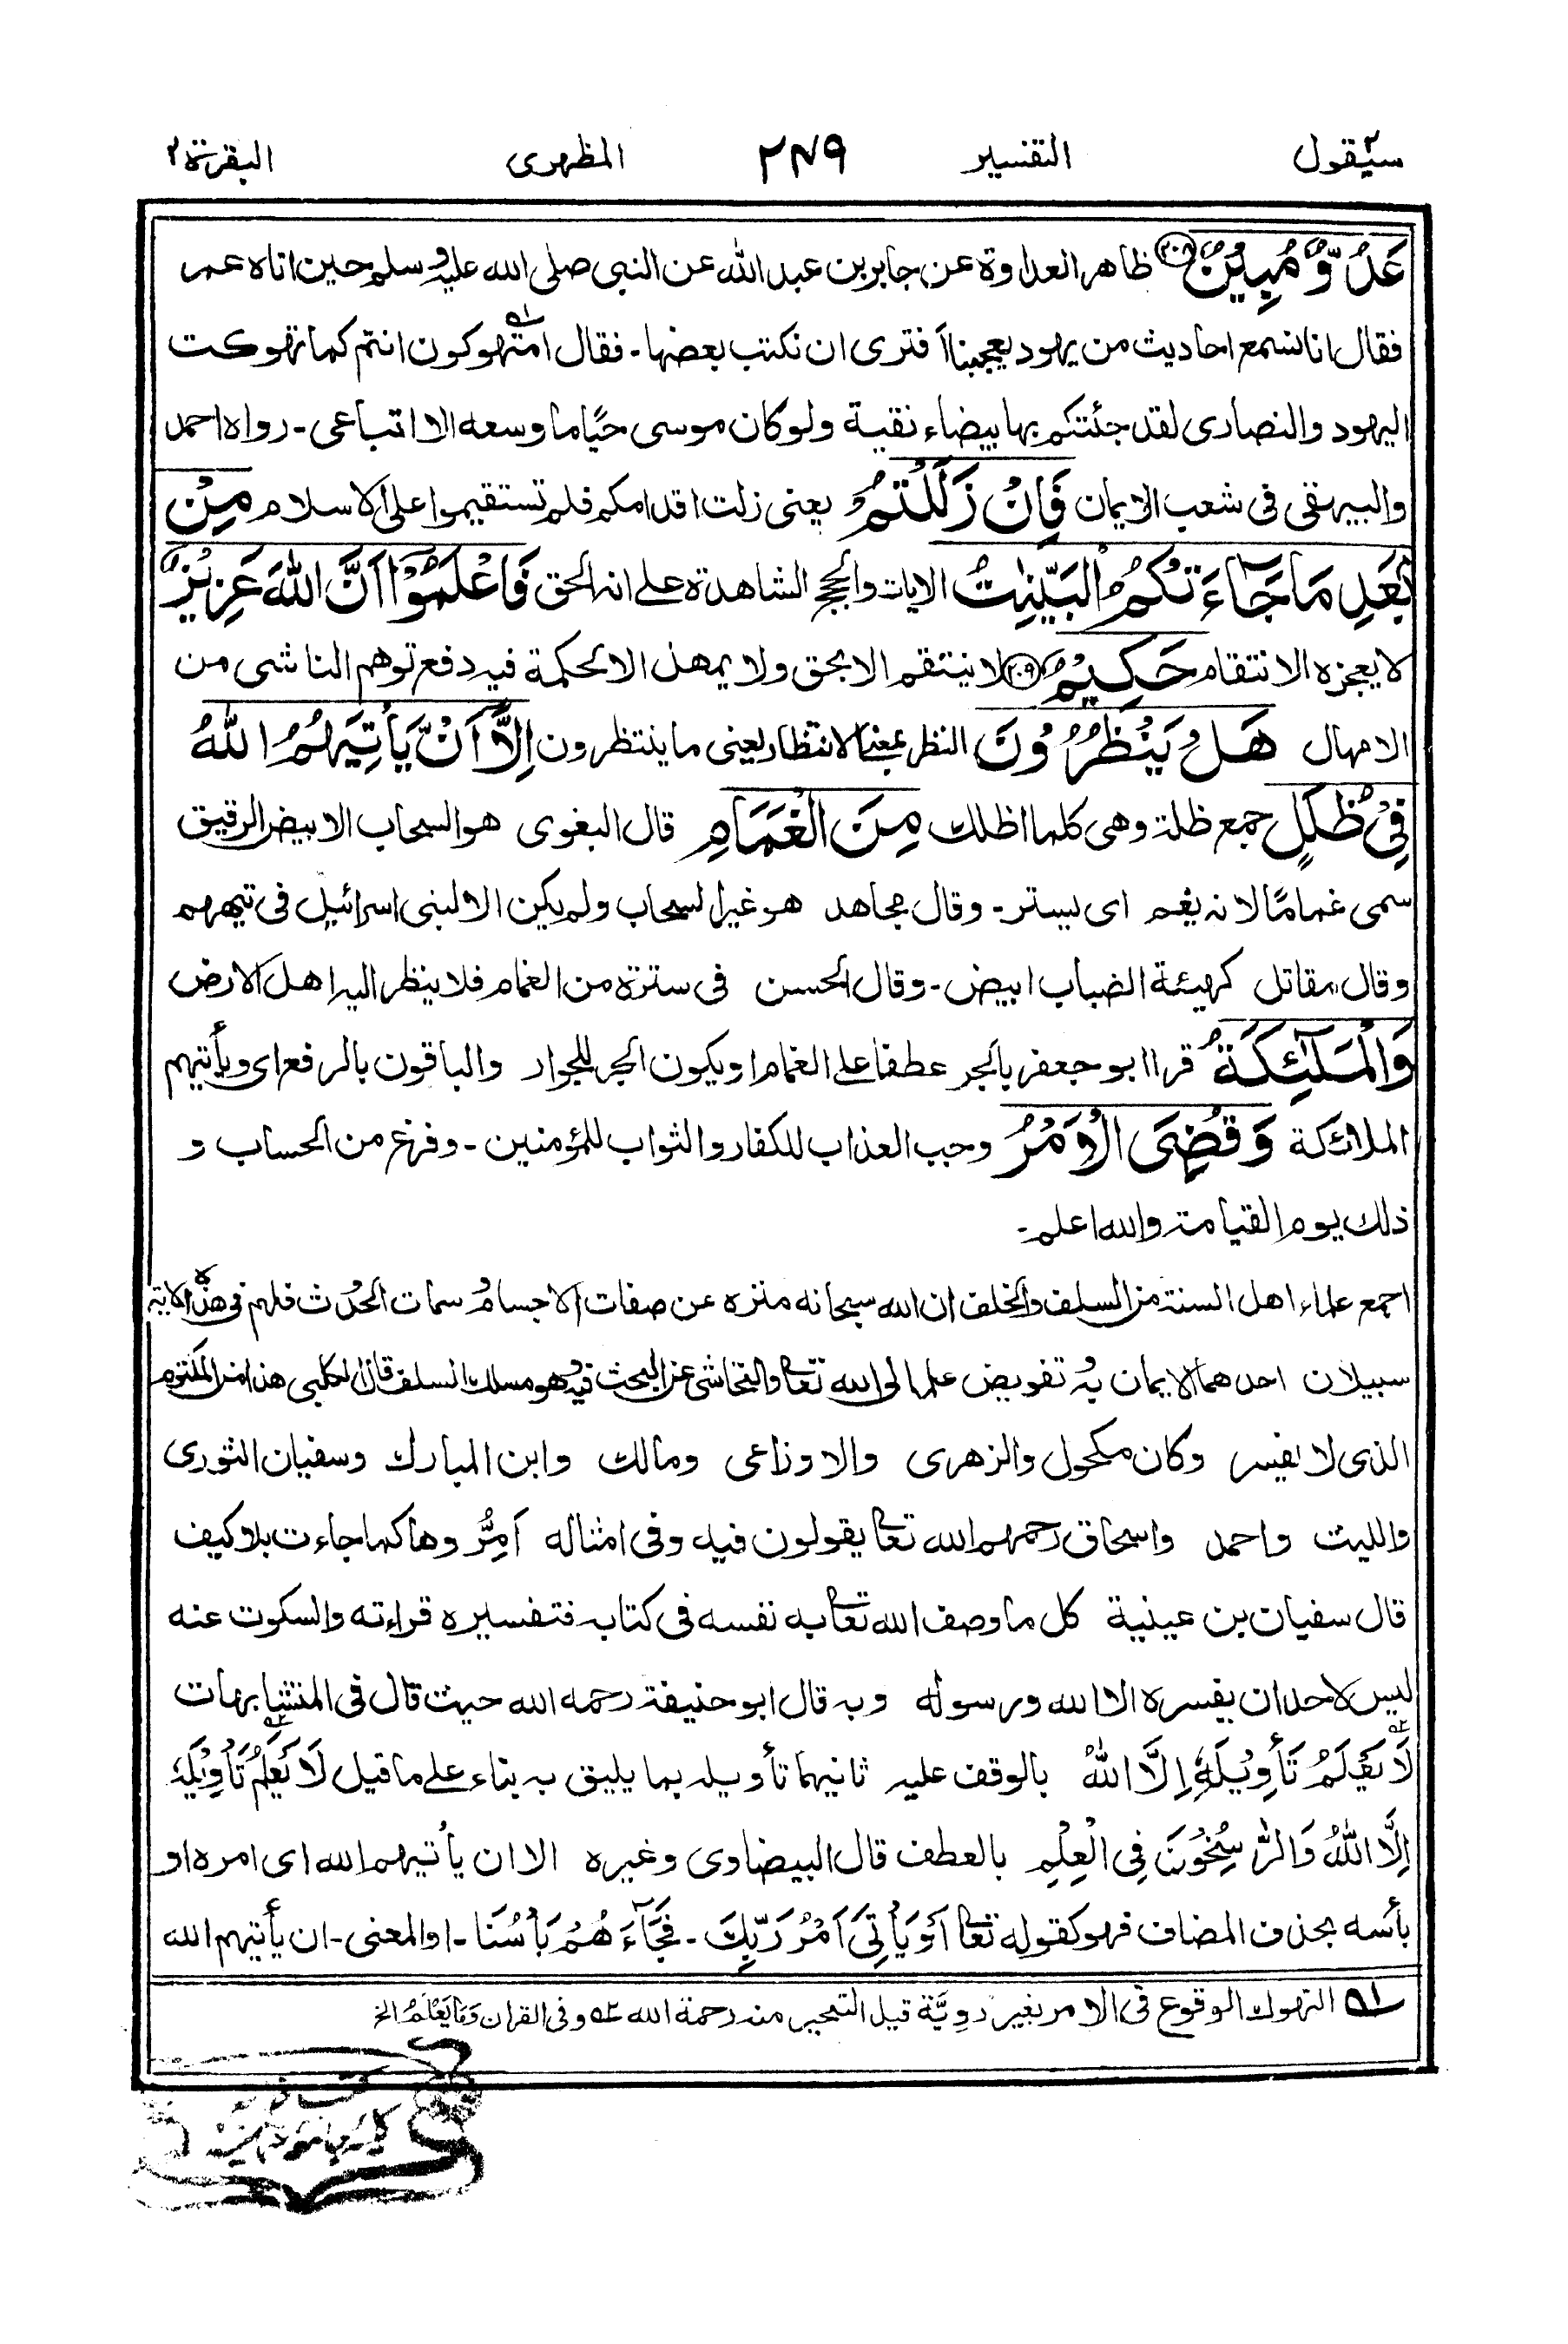 سيقول ٢ التفسير ٢٤٩ المظهرى البقرة ٢
عَدُوٌّ مُّبِيْنٌ ﴿٢٠٨﴾ ظاهر العداوة عن جابر بن عبد الله عن النبى صلى الله عليه وسلم حين اتاه عمر
فقال انا نسمع احاديث من يهود يعجبنا أفترى ان نكتب بعضها ـ فقال امتهوكون ١ه انتم كما تهوكت
اليهود والنصارى لقد جئتكم بها بيضاء نقية ولو كان موسى حيًا ما وسعه الا اتباعى ـ رواه احمد
والبيهقى فى شعب الايمان فَاِنْ زَلَلْتُمْ يعنى زلت اقدامكم فلم تستقيموا على الاسلام مِنْ
بَعْدِ مَا جَآءَتْكُمُ الْبَيِّنٰتُ الايات والحجج الشاهدة على انه الحق فَاعْلَمُوْۤا اَنَّ اللهَ عَزِيْزٌ
لا يعجزه الانتقام حَكِيْمٌ ﴿٢٠٩﴾ لا ينتقم الا بحق ولا يمهل الا لحكمة فيه دفع توهم الناشى من
الامهال هَلْ يَنْظُرُوْنَ النظر بمعنى الانتظار يعنى ما ينتظرون اِلَّاۤ اَنْ يَّأْتِيَهُمُ اللهُ
فِيْ ظُلَلٍ جمع ظلة وهى كلما اظلك مِنَ الْغَمَامِ قال البغوى هو السحاب الابيض الرقيق
سمى غمامًا لانه يغم اى يستر ـ وقال مجاهد هو غير السحاب ولم يكن الا لبنى اسرائيل فى تيههم
وقال مقاتل كهيئة الضباب ابيض ـ وقال الحسن فى سترة من الغمام فلا ينظر اليه اهل الارض
وَالْمَلٰٓئِكَةُ قرا ابو جعفر بالجر عطفا على الغمام او يكون الجر للجوار والباقون بالرفع اى ويأتيهم
الملائكة وَقُضِىَ الْاَمْرُ وجب العذاب للكفار والثواب للمؤمنين ـ وفرغ من الحساب و
ذلك يوم القيامة والله اعلم ـ
اجمع علماء اهل السنة من السلف والخلف ان الله سبحانه منزه عن صفات الاجسام وسمات الحدُوث فلهم فى هذه الاية
سبيلان احدهما الايمان به وتفويض علمه الى الله تعالى والتحاشى عن البحث فيه وهو مسلك السلف قال الكلبى هذا من المكتوم
الذى لا يفسر وكان مكحول والزهرى والاوزاعى ومالك وابن المبارك وسفيان الثورى
والليث واحمد واسحاق رحمهم الله تعالى يقولون فيه وفى امثاله اَمِرُّوها كما جاءت بلا كيف
قال سفيان بن عيينة كل ما وصف الله تعالى به نفسه فى كتابه فتفسيره قراءته والسكوت عنه
ليس لاحد ان يفسره الا الله ورسوله وبه قال ابو حنيفة رحمه الله حيث قال فى المتشابهات
لَا يَعْلَمُ ٢ه تَأْوِيْلَهٗۤ اِلَّا اللهُ بالوقف عليه ثانيهما تأويله بما يليق به بناء على ما قيل لَا يَعْلَمُ تَأْوِيْلَهٗۤ
اِلَّا اللهُ وَالرّٰسِخُوْنَ فِي الْعِلْمِ بالعطف قال البيضاوى وغيره الا ان يأتيهم الله اى امره او
بأسه بحذف المضاف فهو كقوله تعالى اَوْ يَأْتِىَ اَمْرُ رَبِّكَ ـ فَجَآءَهُمْ بَأْسُنَا ـ او المعنى ـ ان يأتيهم الله
١ه التهوك الوقوع فى الامر بغير رويَّة قيل التحير منه رحمة الله ٢ه وفى القران وَمَا يَعْلَمُ الخ